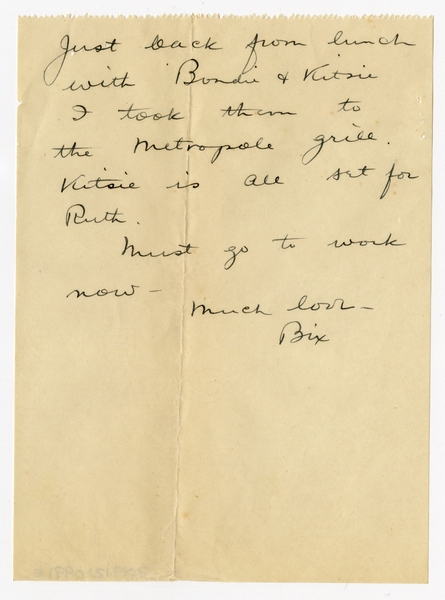 Just back from lunch
with Bondie & Kitsie
I took them to
the Metropole grill.
Kitsie is all set for
Ruth.
Must go to work
now -
Much love -
Bix